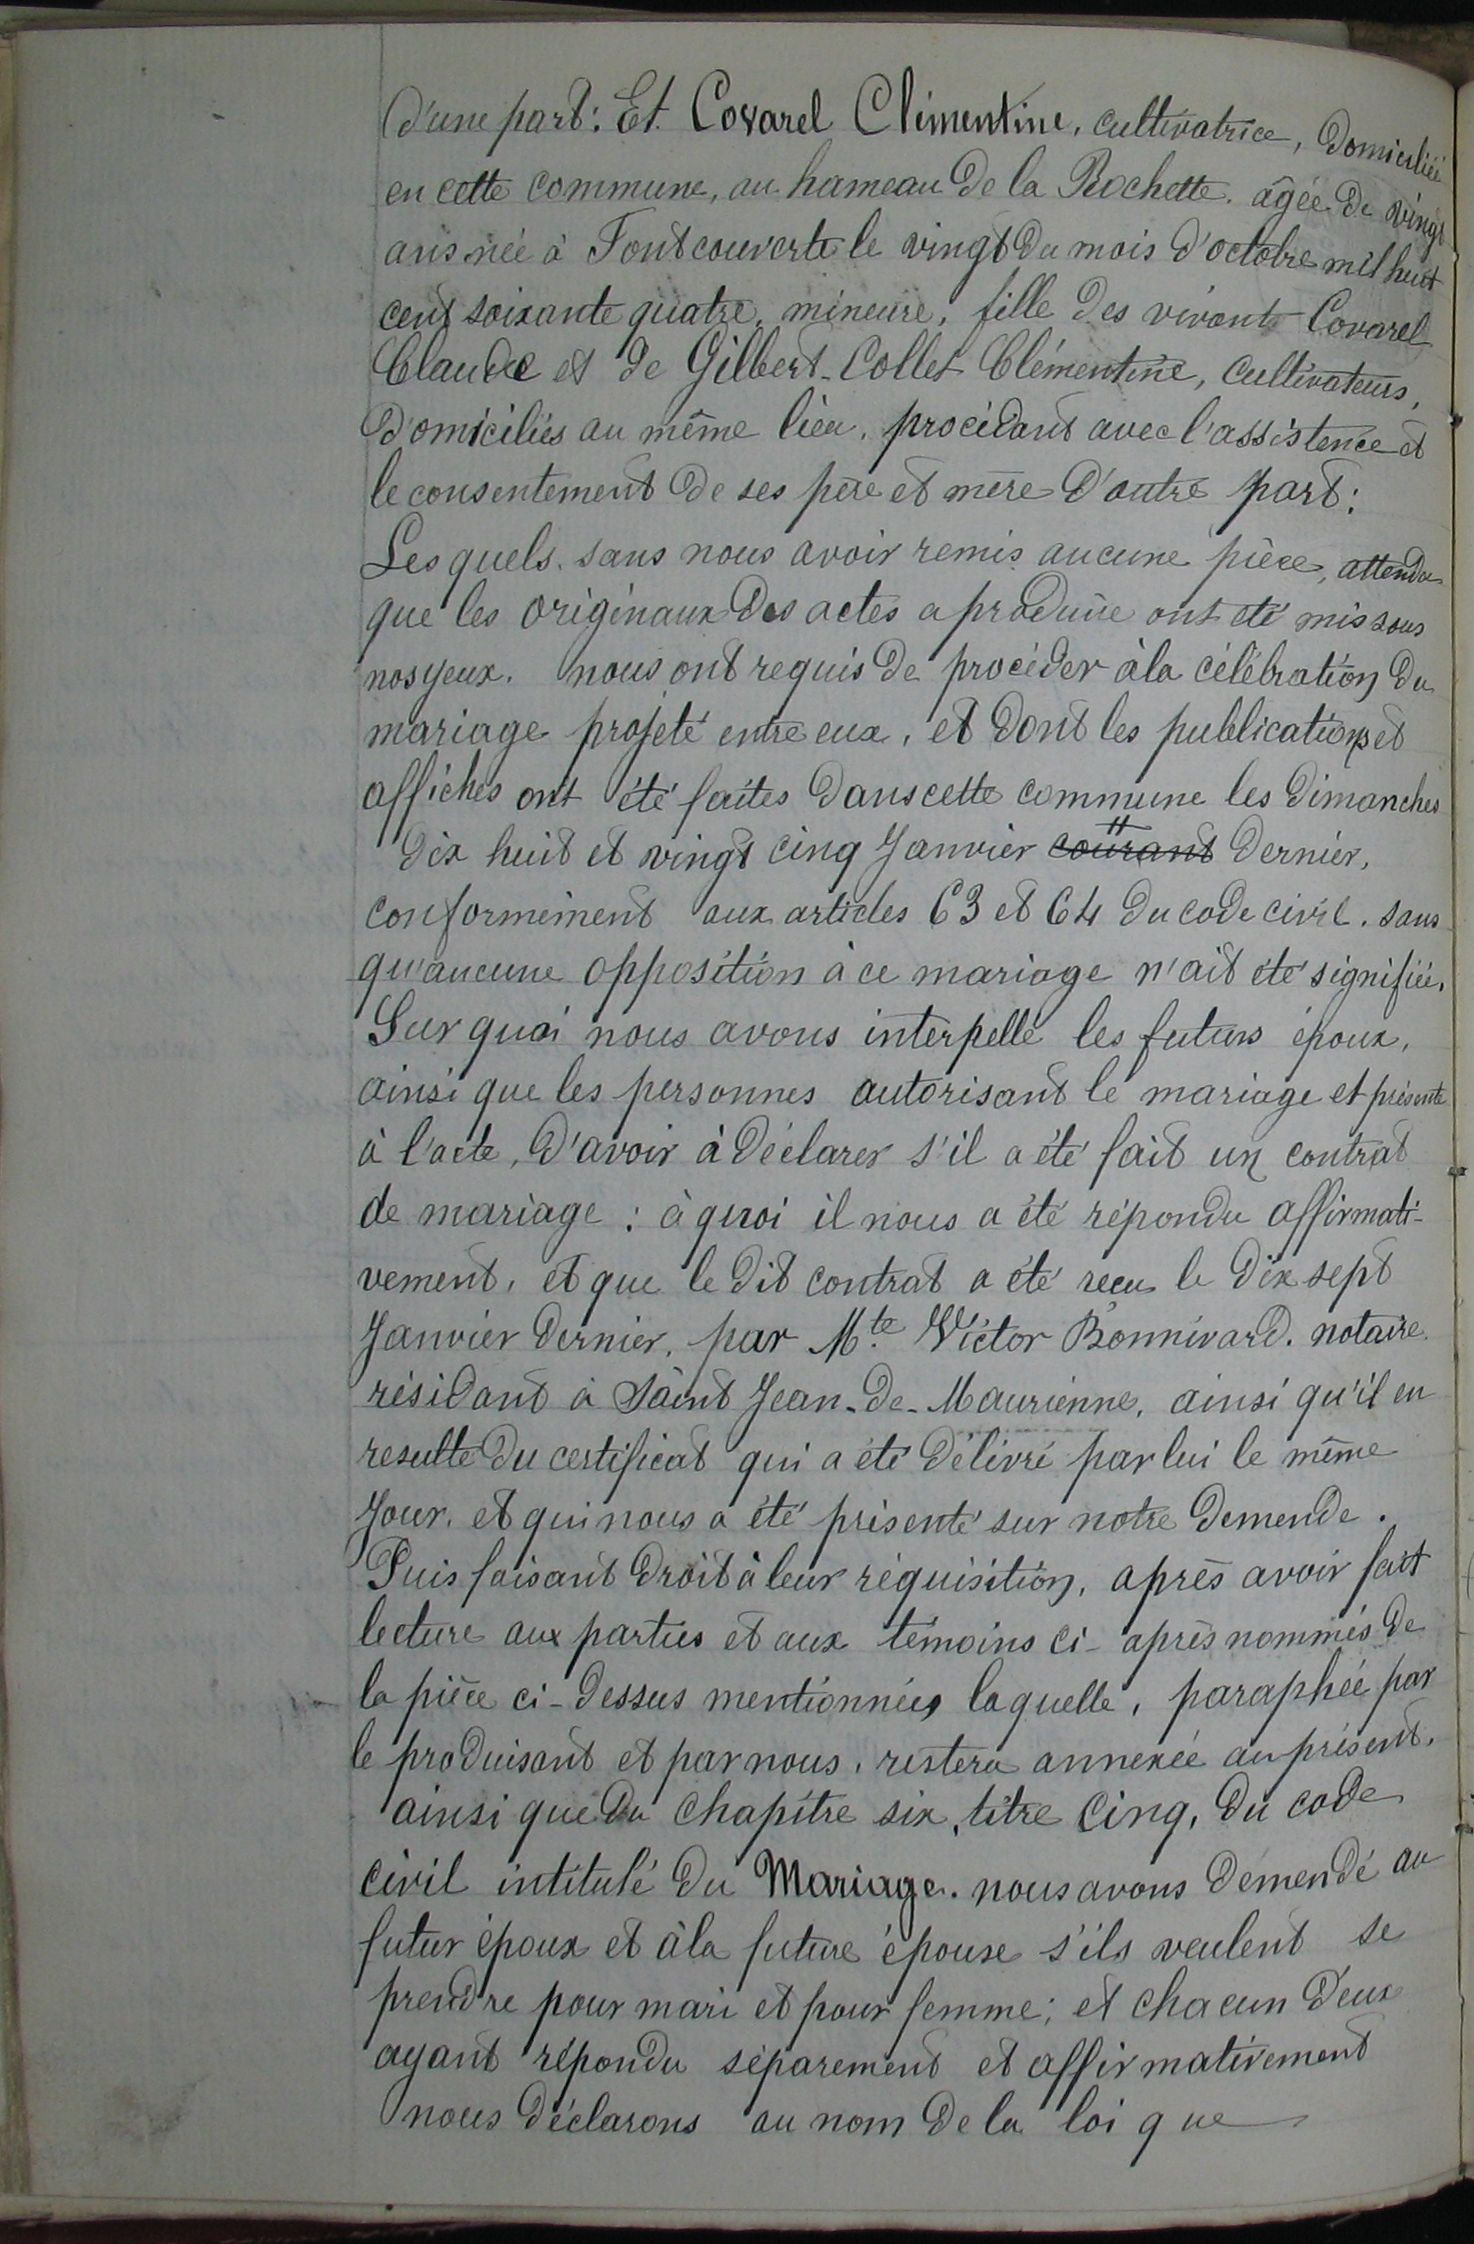 d'une part: Et Covarel Clémentine, cultivatrice, domiciliée
en cette commune, au hameau de la Rochette, âgée de vingt
ans née à Fontcouverte le vingt du mois d'octobre mil huit
cent soixante quatre, mineure, fille des vivants Covarel
Claude et de Gilbert-Collet Clémentine, cultivateurs,
domiciliés au même lieu, procédant avec l'assistence et
le consentement de ses père et mère d'autre part:
Lesquels, sans nous avoir remis aucune pièce, attendu
que les originaux des actes a produire ont été mis sous
nos yeux. nous ont requis de procéder à la célébration du
mariage projeté entre eux, et dont les publications et
affiches ont été faites dans cette commune les dimanches
dix huit et vingt cinq Janvier courant dernier,
conformément aux articles 63 et 64 du code civil. sans
qu'aucune opposition à ce mariage n'ait été signifiée.
Sur quoi nous avons interpellé les futurs époux,
ainsi que les personnes autorisant le mariage et présente
à l'acte, d'avoir à déclarer s'il a été fait un contrat
de mariage : à quoi il nous a été répondu affirmati-
vement, et que le dit contrat a été reçu le dix sept
Janvier dernier, par Mte Victor Bonnivard. notaire
résidant à Saint Jean-de-Maurienne, ainsi qu'il en
resulte du certificat qui a été délivré par lui le même
Jour, et qui nous a été présenté sur notre demende.
Puis faisant droit à leur réquisition, après avoir fait
lecture aux parties et aux témoins ci-après nommés de
la pièce ci-dessus mentionnées laquelle, paraphée par
le produisant et par nous, restera annexée au présent,
ainsi que du chapitre six, titre cinq, du code
civil intitulé du Mariage. nous avons demendé au
futur époux et à la future épouse s'ils veulent se
prendre pour mari et pour femme; et chacun d'eux
ayant répondu séparement et affirmativement
nous déclarons au nom de la loi que